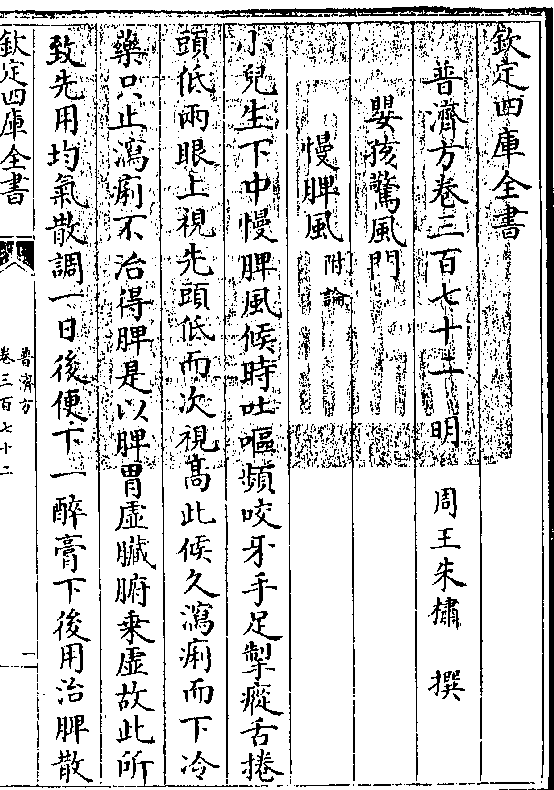 欽定四庫全書
普濟方卷三百七十二　明　周王朱橚　撰
嬰孩驚風門
慢脾風附論
小兒生下中慢脾風候時吐嘔頻咬牙手足掣瘲舌捲
頭低兩眼上視先頭低而次視髙此候久瀉痢而下冷
藥只止瀉痢不治得脾是以脾胃虛臟腑乗虛故此所
致先用均氣散調一日後便下一醉膏下後用治脾散
欽定四庫全書
普濟方
卷三百七十二
一